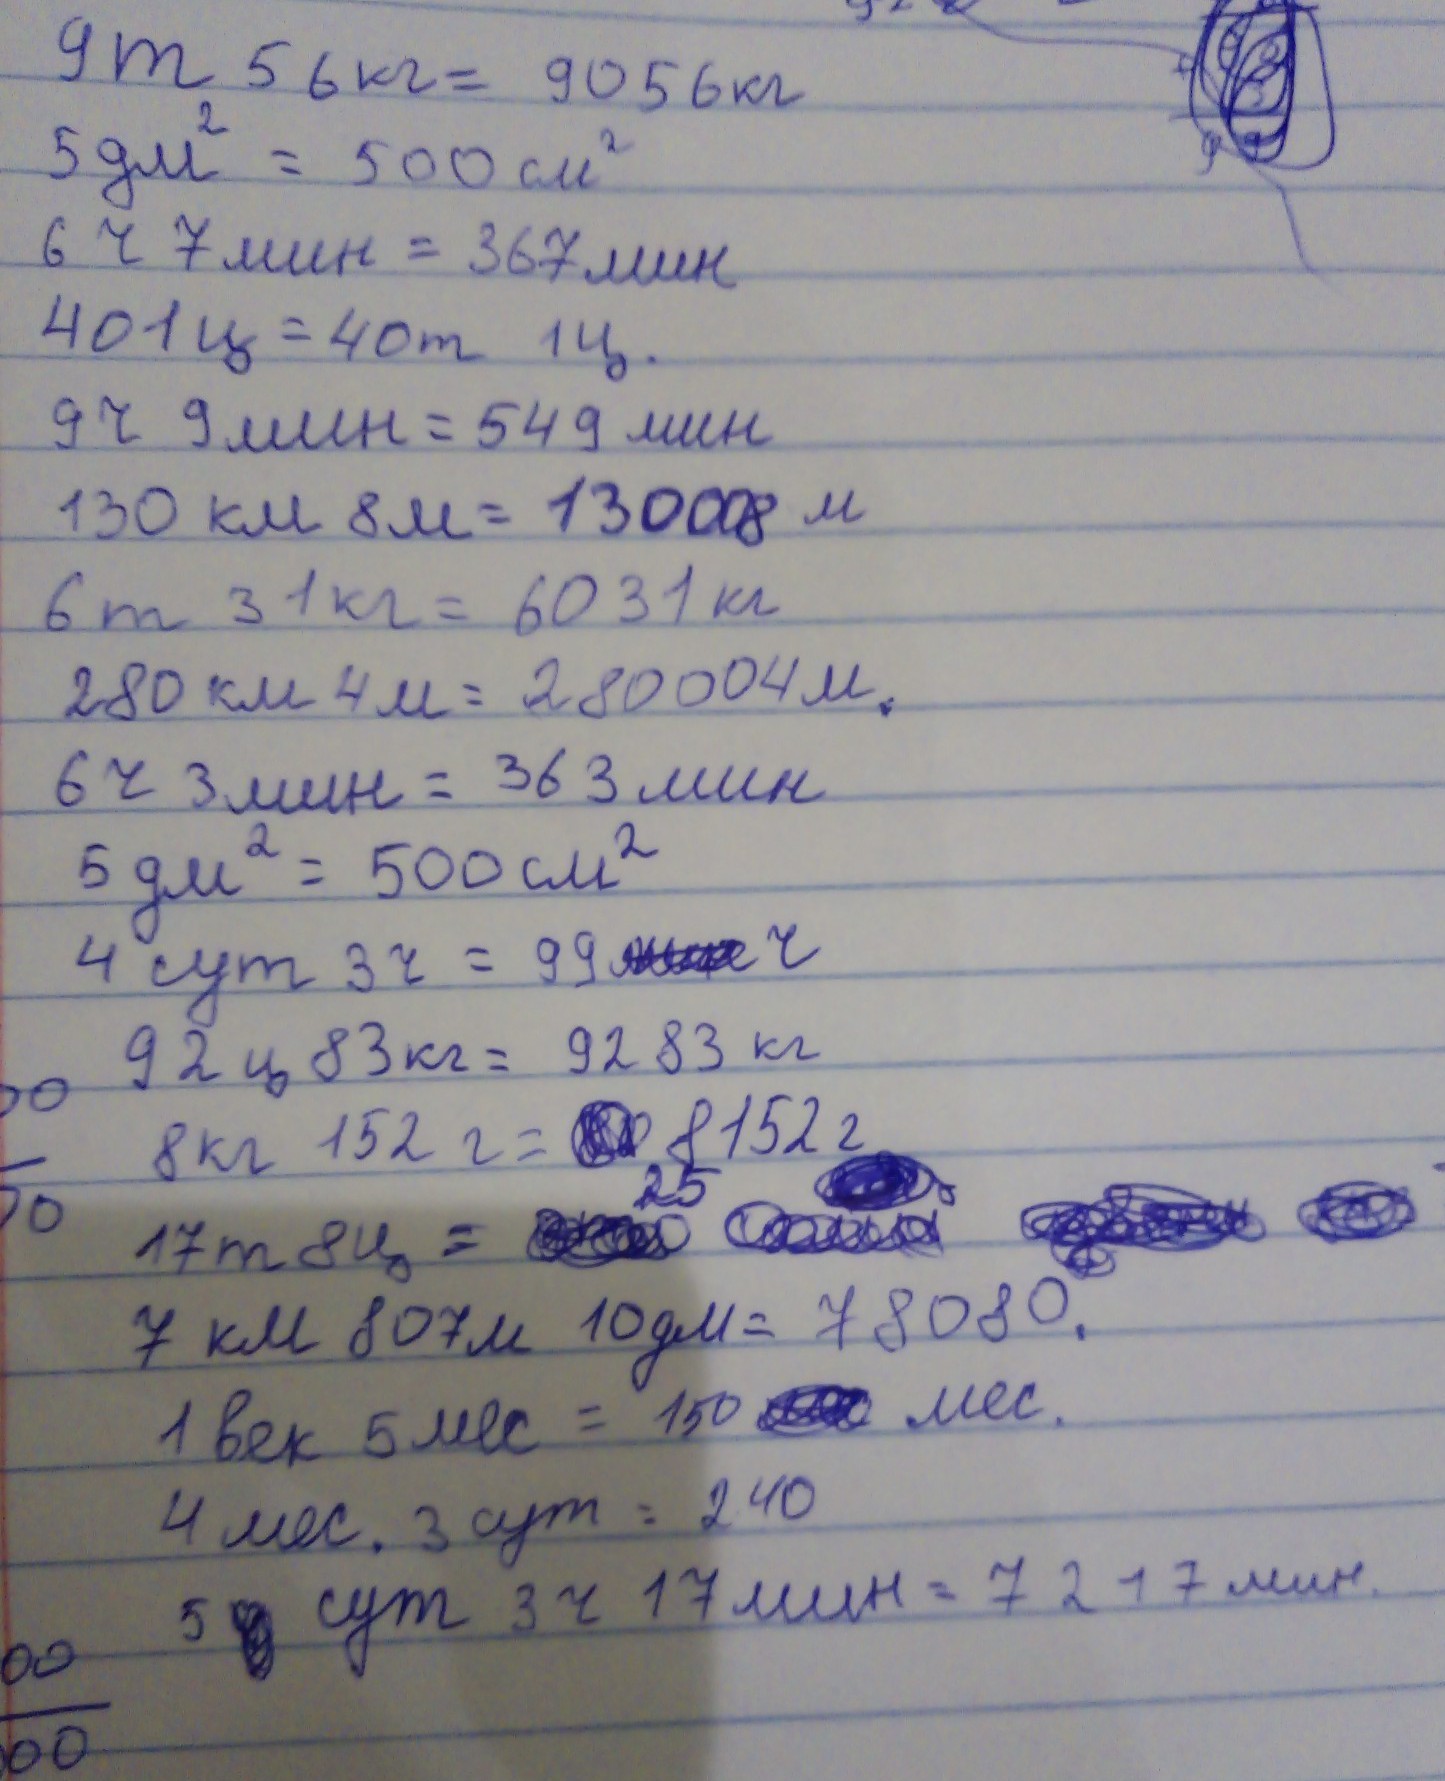 9т 56кг = 9056кг
5дм² = 500см²
6ч 7мин = 367мин
401ц = 40т 1ц.
9ч 9мин = 549мин
130км 8м = 130008 м
6т 31кг = 6031кг
280км 4м = 280004м.
6ч 3мин = 363мин
5дм² = 500см²
4 сут 3ч = 99 ч
92ц 83кг = 9283 кг
00
8кг 152г = 8152г
25
00
17т 8ц =
7 км 807м 10дм = 78080.
1 век 5 мес = 150 мес.
4 мес. 3 сут = 240
5 сут 3ч 17мин = 7217мин.
00
00